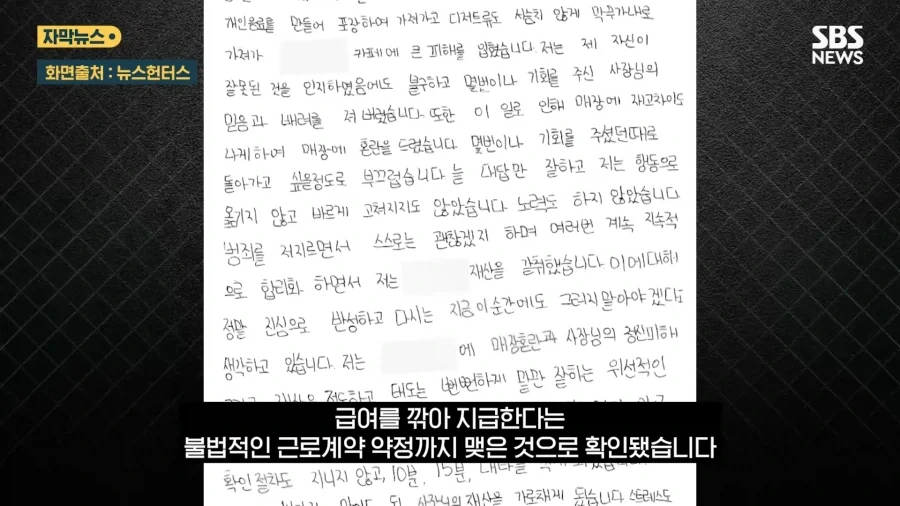 자막뉴스
화면출처 : 뉴스헌터스
SBS
NEWS
개인음료를 만들어 포장하여 가져가고 디저트류도 서슴치 않게 막무가내로
가져가 카페에 큰 피해를 입혔습니다. 저는 제 자신이
잘못된 것을 인지하였음에도 불구하고 몇번이나 기회를 주신 사장님의
믿음과 배려를 져 버렸습니다. 또한 이 일로 인해 매장에 재고차이도
나게하여 매장에 혼란을 드렸습니다 몇번이나 기회를 주셨던때로
돌아가고 싶을정도로 부끄럽습니다 늘 대답만 잘하고 저는 행동으로
옮기지 않고 바르게 고쳐지지도 않았습니다 노력도 하지 않았습니다
범죄를 저지르면서 스스로는 괜찮겠지 하며 여러번 계속 지속적
으로 합리화 하면서 저는 재산을 갈취했습니다 이에대해
정말 진심으로 반성하고 다시는 지금 이순간에도 그러지 말아야겠다고
생각하고 있습니다. 저는 에 매장혼란과 사장님의 정신피해
태도는 뻔뻔하게 말만 잘하는 위선적인
급여를 깎아 지급한다는
불법적인 근로계약 약정까지 맺은 것으로 확인됐습니다
확인절차도 지니지 않고, 10분, 15분,
사장님의 재산을 가로채게 됐습니다 스트레스도